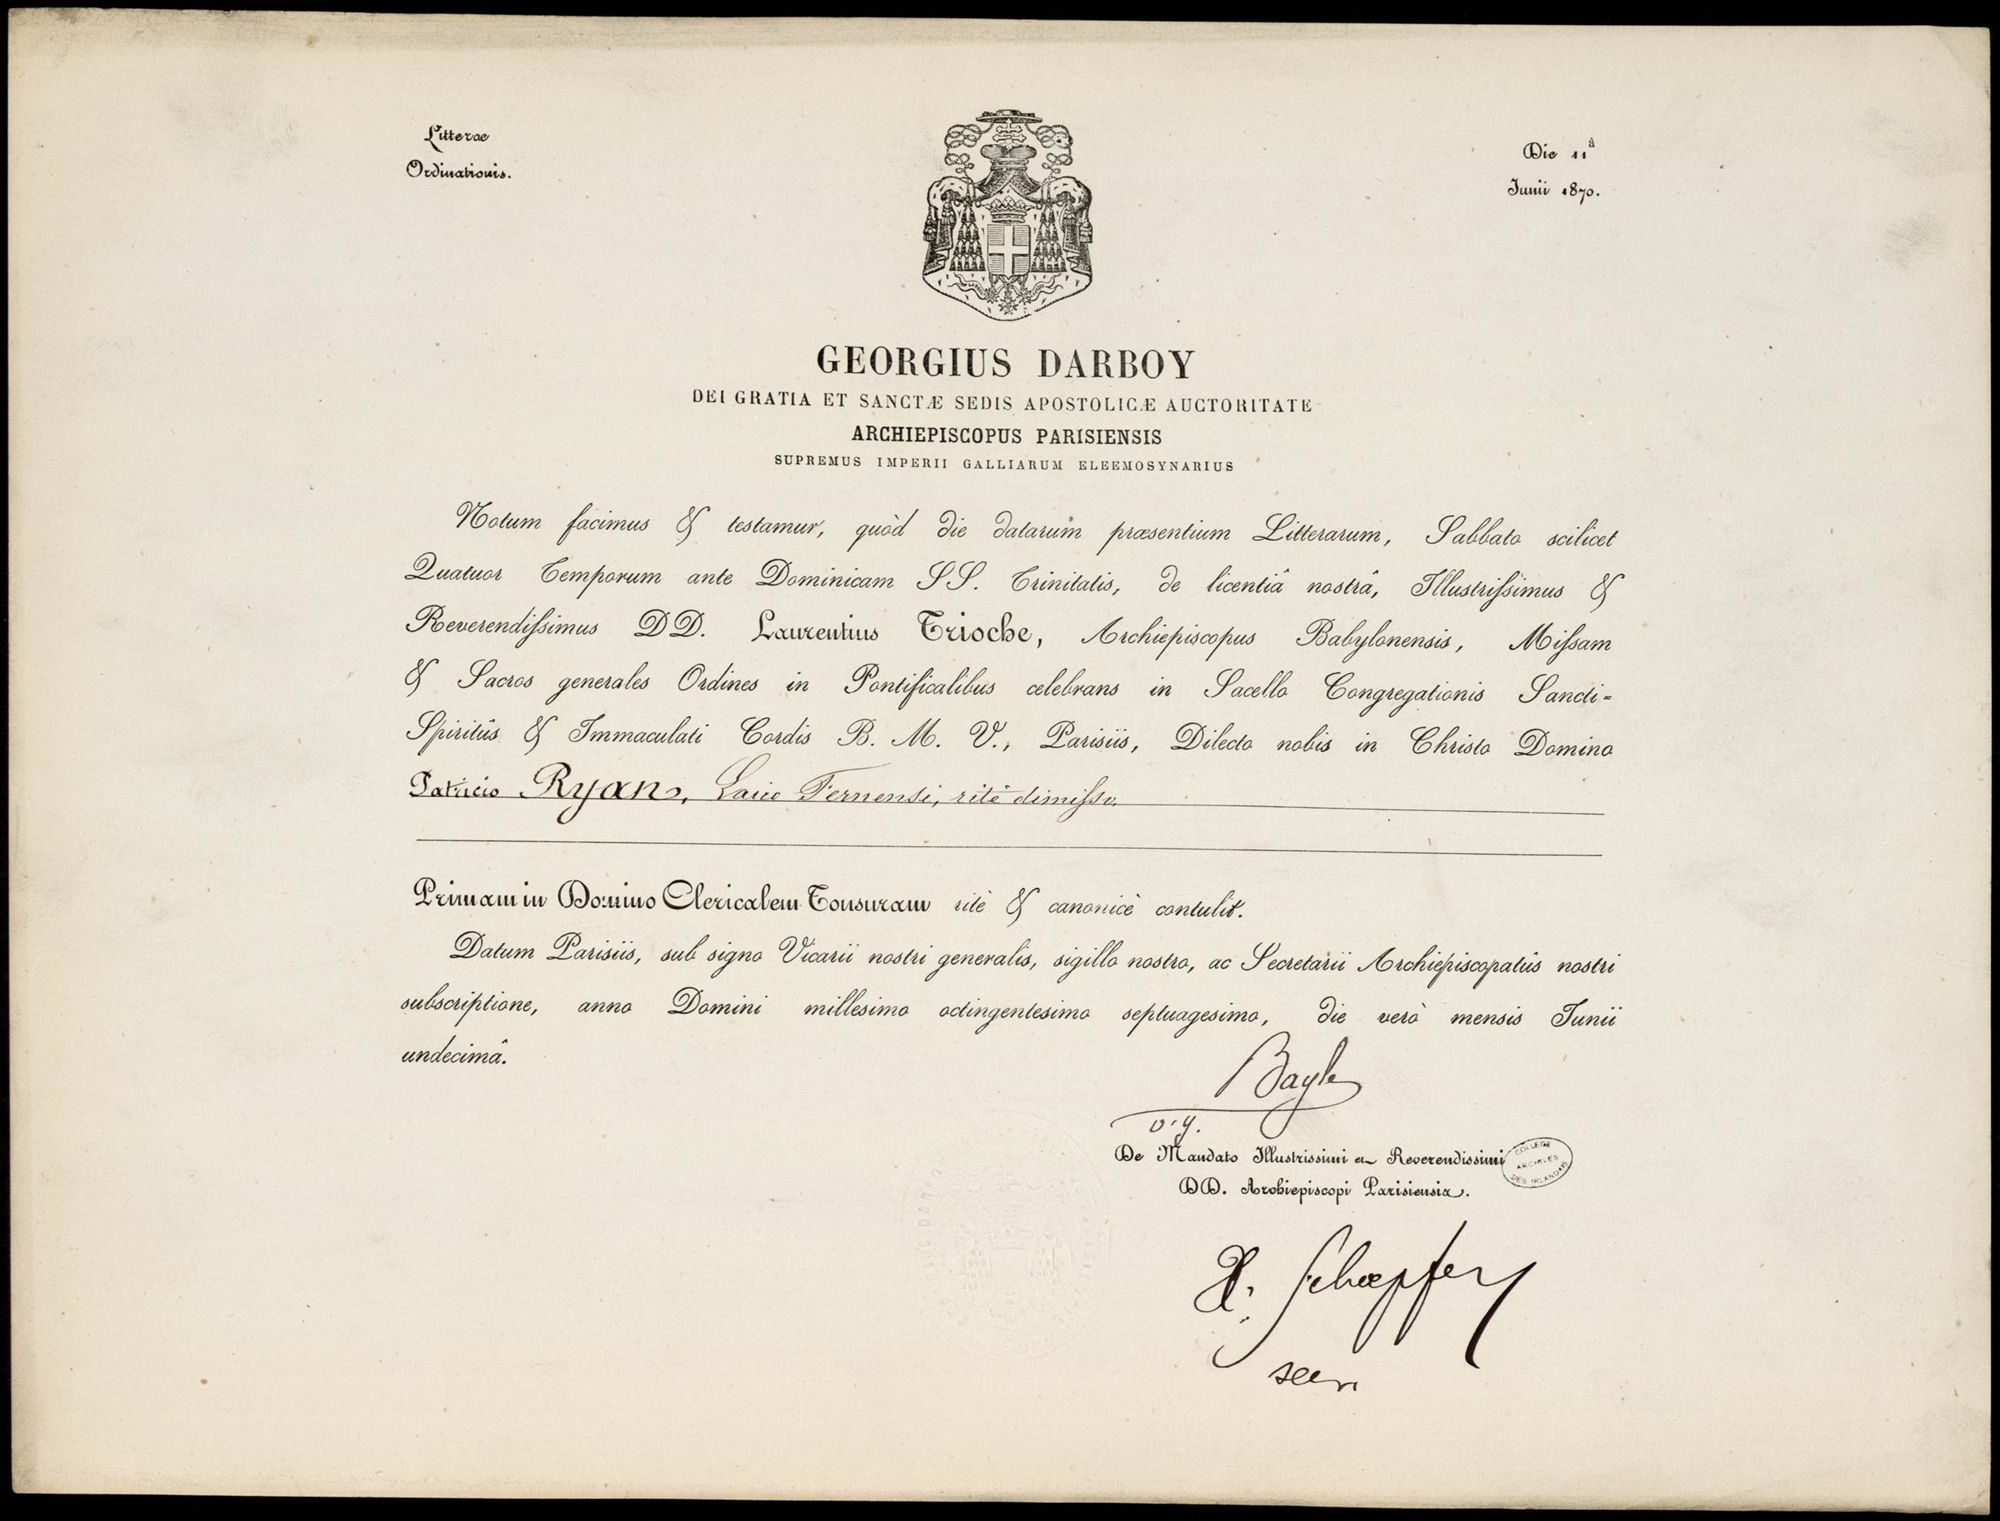 Litterae
Ordinationis.
Die 11ª
Junii 1870.
GEORGIUS DARBOY
DEI GRATIA ET SANCTÆ SEDIS APOSTOLICÆ AUCTORITATE
ARCHIEPISCOPUS PARISIENSIS
SUPREMUS IMPERII GALLIARUM ELEEMOSYNARIUS
Notum facimus & testamur, quòd die datarum præsentium Litterarum, Sabbato scilicet
Quatuor Temporum ante Dominicam SS. Trinitatis, de licentiâ nostrâ, Illustrissimus &
Reverendissimus DD. Laurentius Trioche, Archiepiscopus Babylonensis, Missam
& Sacros generales Ordines in Pontificalibus celebrans in Sacello Congregationis Sancti=
Spiritûs & Immaculati Cordis B. M. V., Parisiis, Dilecto nobis in Christo Domino
Patricio Ryan, Laico Fernensi, ritè dimisso,
Primam in Domino Clericalem Tonsuram ritè & canonicè contulit.
Datum Parisiis, sub signo Vicarii nostri generalis, sigillo nostro, ac Secretarii Archiepiscopatûs nostri
subscriptione, anno Domini millesimo octingentesimo septuagesimo, die verò mensis Junii
undecimâ.
Bayle
v.g.
De Mandato Illustrissimi et Reverendissimi
DD. Archiepiscopi Parisiensis.
COLLEGE
ARCHIVES
DES IRLANDAIS
Schœpfer